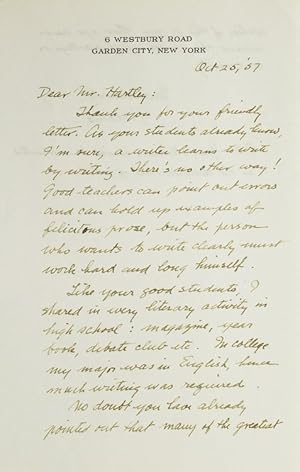 6 WESTBURY ROAD
GARDEN CITY, NEW YORK
Oct 25, '57
Dear Mr. Hartley:
Thank you for your friendly
letter. As your students already know,
I'm sure, a writer learns to write
by writing. There's no other way!
Good teachers can point out errors
and can hold up examples of
felicitous prose, but the person
who wants to write clearly must
work hard and long himself.
Like your good students, I
shared in every literary activity in
high school: magazine, year
book, debate club etc. In college
my major was in English, hence
much writing was required.
No doubt you have already
pointed out that many of the greatest